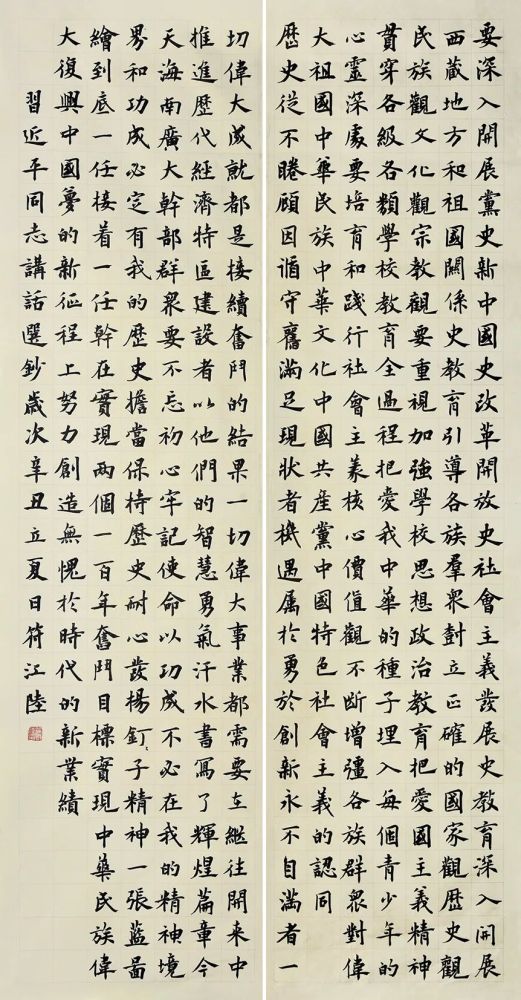 要深入開展黨史新中國史改革開放史社會主義發展史教育深入開展
西藏地方和祖國關係史教育引導各族羣衆尌立正確的國家觀歷史觀
民族觀文化觀宗教觀要重視加強學校思想政治教育把愛國主義精神
貫穿各級各類學校教育全過程把愛我中華的種子埋入每個青少年的
心靈深處要培育和踐行社會主義核心價值觀不斷增彊各族群衆對偉
大祖國中華民族中華文化中國共産黨中國特色社會主義的認同
歷史從不睠顧因循守舊滿足現狀者機遇屬於勇於創新永不自滿者一
切偉大成就都是接續奮鬥的結果一切偉大事業都需要在繼往開來中
推進歷代經濟特區建設者以他們的智慧勇氣汗水書寫了輝煌篇章今
天海南廣大幹部群衆要不忘初心牢記使命以功成不必在我的精神境
界和功成必定有我的歷史擔當保持歷史耐心發楊釘子精神一張藍啚
繪到底一任接着一任幹在實現兩個一百年奮鬥目標實現中華民族偉
大復興中國夢的新征程上努力創造無愧於時代的新業績
習近平同志講話選鈔歲次辛丑立夏日符江陸